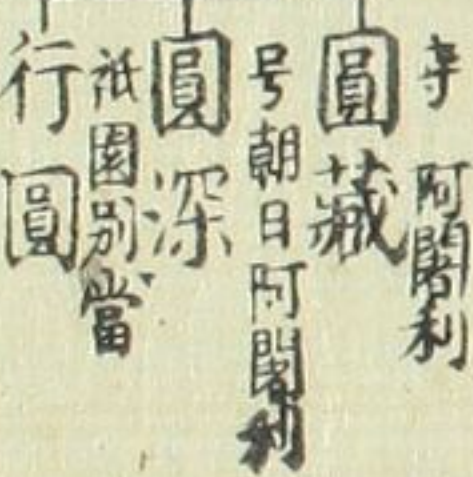 寺 阿闍利
圓藏
号朝日阿闍利
圓深
祇園別當
行圓